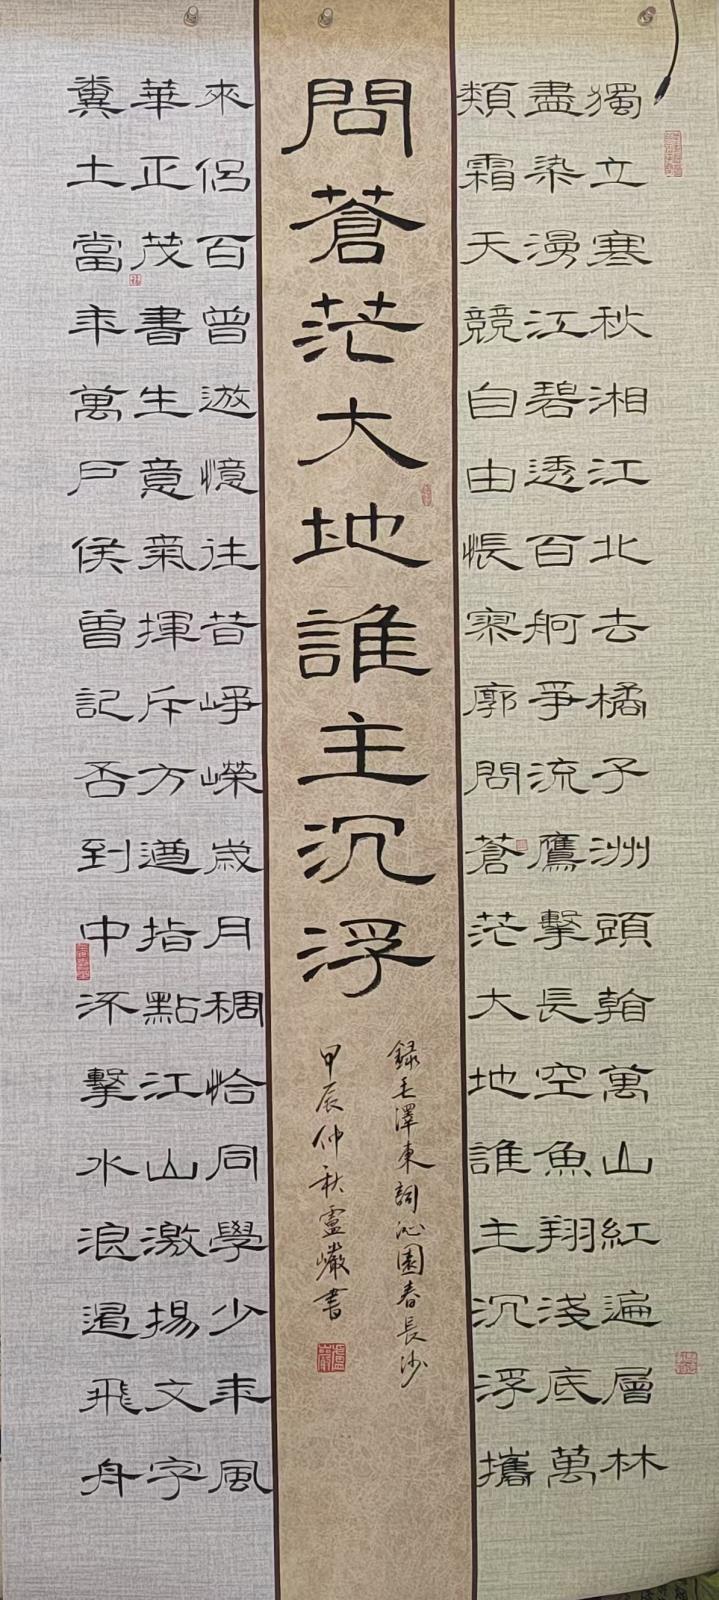 獨立寒秋湘江北去橘子洲頭看萬山紅遍層林
盡染漫江碧透百舸爭流鷹擊長空魚翔淺底萬
類霜天競自由悵寥廓問蒼茫大地誰主沉浮攜
問蒼茫大地誰主沉浮
錄毛澤東詞沁園春長沙
甲辰仲秋盧巖書
來侶百曾遊憶往昔崢嶸歲月稠恰同學少年風
華正茂書生意氣揮斥方遒指點江山激揚文字
糞土當年萬戶侯曾記否到中流擊水浪遏飛舟